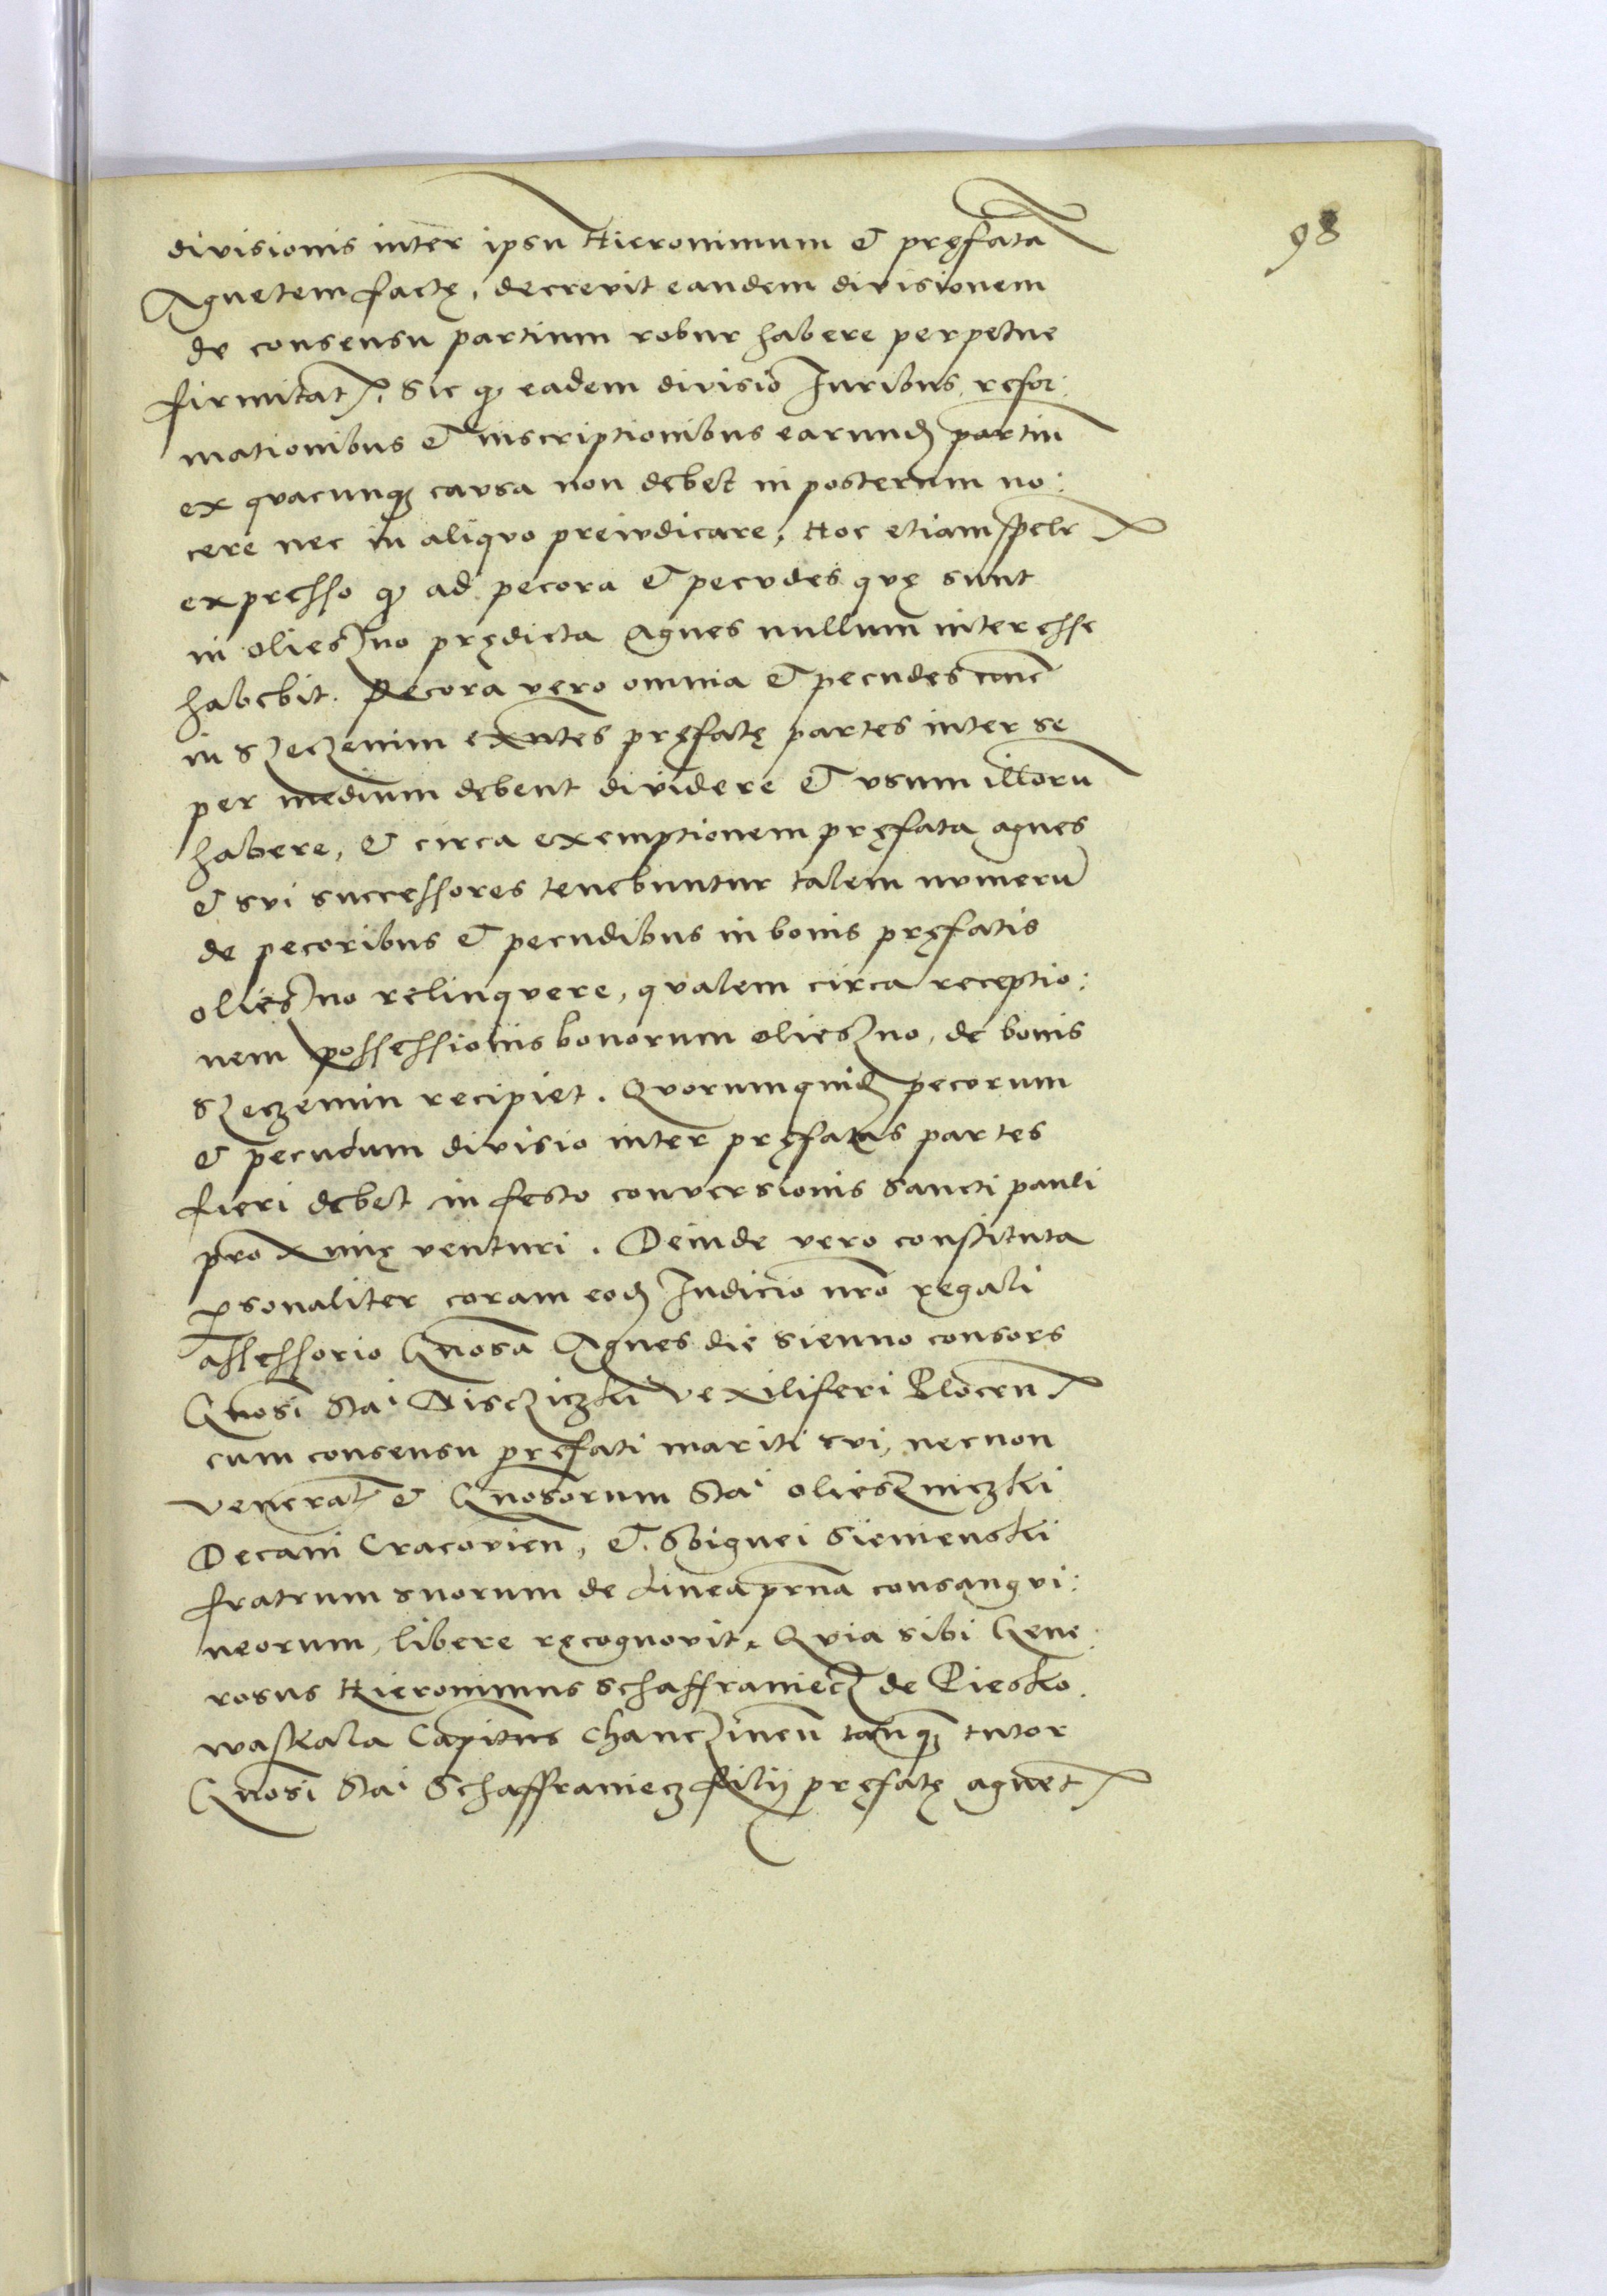 98
divisionis inter ipsū Hieronimum & pręfatā
Agnetem factę, decrevit eandem divisionem
de consensu partium robur habere perpetue
firmitat. Sic q eadem divisio Iuribus, refor:
mationibus & inscriptionibus earund partiū
ex quacunq causa non debet in posterum no:
cere nec in aliquo preiudicare, Hoc etiam spēlr
expresso q ad pecora & pecudes quę sunt
in olieszno prędicta Agnes nullum interesse
habebit. Pecora vero omnia & pecudes
in Szeczemin exn̄tes pręfatę partes inter se
per medium debent dividere & usum illorū
habere, & circa exemptionem pręfata agnes
& sui successores tenebuntur talem numerū
de pecoribus & pecudibus in bonis pręfatis
olieszno relinquere, qualem circa receptio:
nem possessionis bonorum olieszno, de bonis
Szeczemin recipiet. Quorumquid pecorum
& pecudum divisio inter pręfatas partes
fieri debet in festo conversionis Sancti pauli
proximę venturi. Deinde vero constituta
psonaliter coram eod Iudicio nr̄o regali
assessorio Gnosā Agnes de sienno consors
Gnosi Stai Miscziczki vexiliferi Plocen
cum consensu pręfati mariti sui, necnon
Venerat & Gnosorum Stai olieszniczki
Decani Cracovien̄, & Sbignei Siemenskii
fratrum suorum de Linea prn̄a consangui:
neorum, libere recognovit. Quia sibi Gene:
rosus Hieronimus Schaffraniecz de Piesko.
waskala Capitn̄s Chanczinen̄ tanq tutor
Gnosi Stai Schaffraniecz filij pręfatę agnet